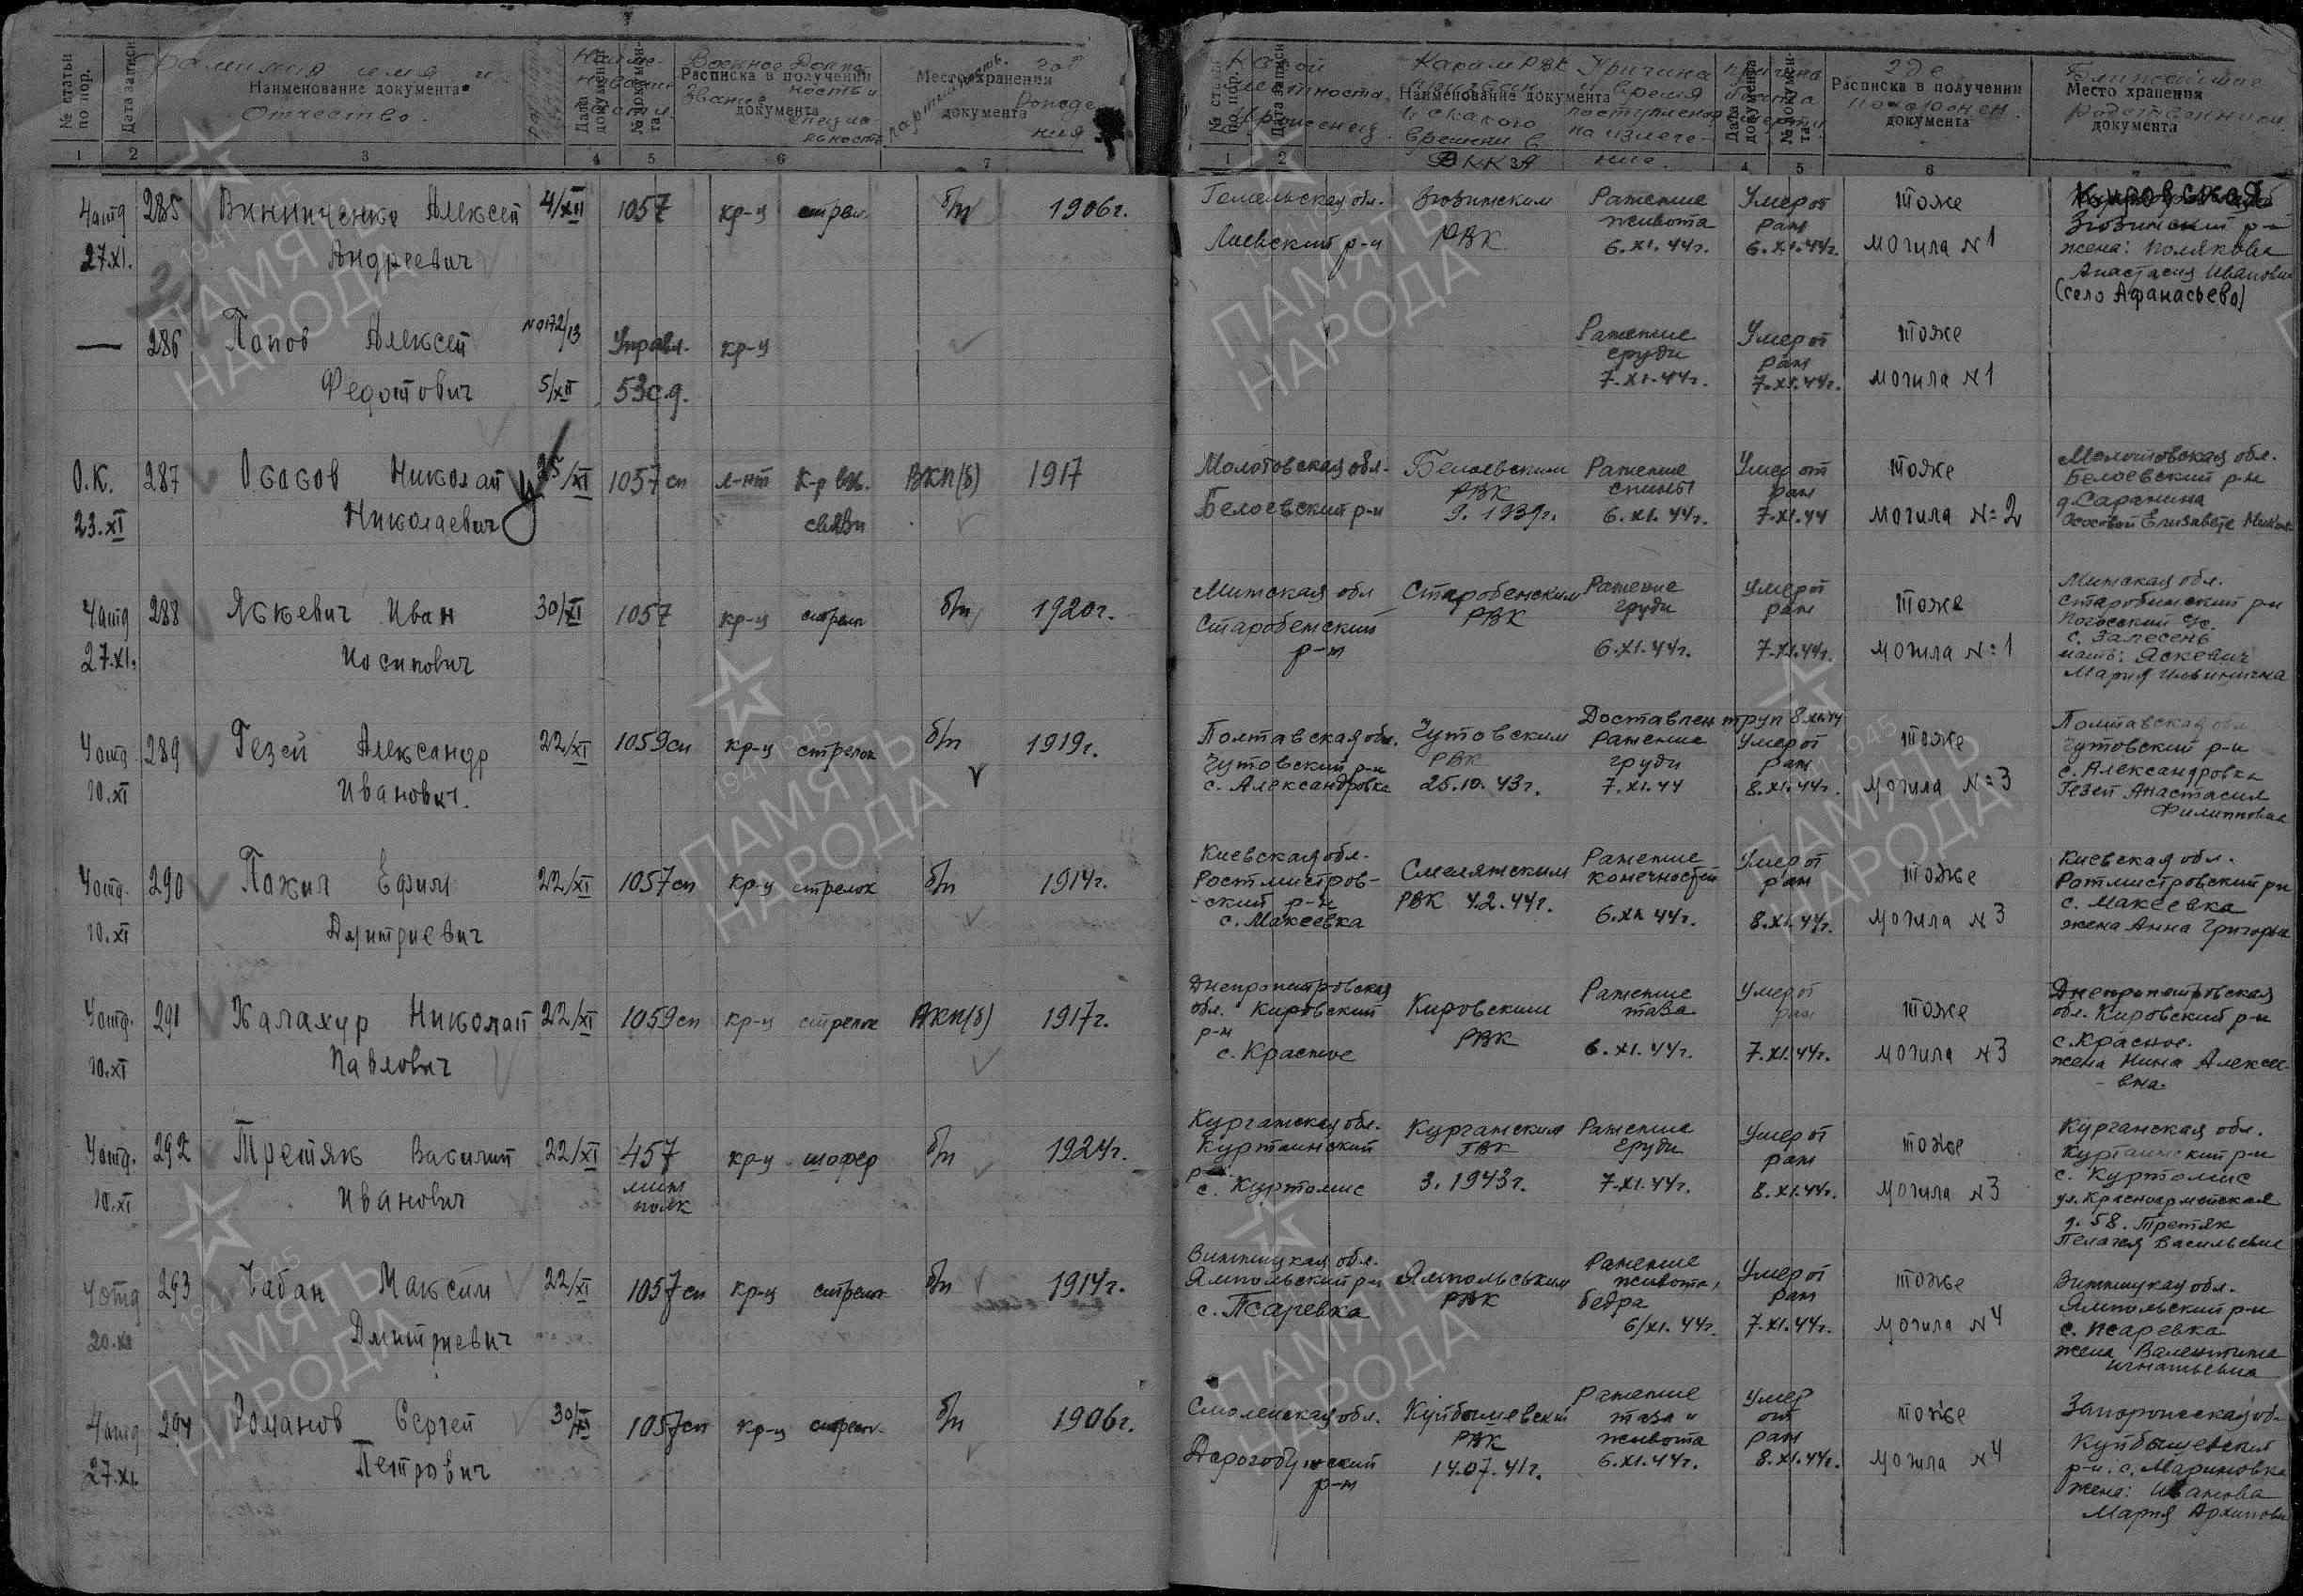 № статьи по пор.
Дата записи
Фамилия имя и
Наименование документа
Отчество.
Дата документа
№ документа
Военное
Расписка в получении
звание
документа
Место хранения
документа
1 2 3 4 5 6 7
4 отд 285 Винниченко Алексей 4/XII 1057 кр-ц стрел. б/п 1906г.
27.XI. Андреевич
— 286 Попов Алексей №0172/13 Управл. кр-ц
Федотович 5/XII 53с.д.
О.К. 287 Ососов Николай 25/XI 1057 сп л-нт К-р вз. ВКП(б) 1917
23.XI Николаевич связи
4 отд 288 Яскевич Иван 30/XI 1057 кр-ц стрелк б/п 1920г.
27.XI. Иосипович
4 отд 289 Гезей Александр 22/XI 1059сп кр-ц стрелок б/п 1919г.
10.XI Иванович.
4 отд. 290 Пажил Ефим 22/XI 1057 сп кр-ц стрелок б/п 1914г.
10.XI Дмитриевич
4 отд. 291 Калахур Николай 22/XI 1059 сп кр-ц стрелок ВКП(б) 1917г.
10.XI Павлович
4 отд. 292 Третяк Василий 22/XI 457 кр-ц шофер б/п 1924г.
10.XI Иванович мин
полк
4 отд 293 Чабан Максим 22/XI 1057 сп кр-ц стрелок б/п 1914г.
20.XI Дмитриевич
4 отд 294 Романов Сергей 30/XI 1057 сп кр-ц стрелок б/п 1906г.
27.XI. Петрович
№ статьи по пор.
Дата записи
Какой
местности
уроженец
Каким РВК
Наименование документа
и с какого
времени в
РККА
Причина
и время
поступления
на излече-
ние.
Дата документа
№ документа
Где
Расписка в получении
похоронен.
документа
Ближайшие
Место хранения
родственники
документа
1 2 3 4 5 6
Гомельская обл. Зговижским Ранение Умер от тоже Кировская
живота ран Зговинский р-н
Лиевский р-н РВК 6.XI.44г. 6.XI.44г. могила №1 жена: Полякова
Анастасия Иванов
(село Афанасьево)
Ранение Умер от тоже
груди ран
7.XI.44г. 7.XI.44г. могила №1
Молотовская обл. Белоевским Ранение Умер от тоже Молотовская обл.
РВК спины ран Белоевский р-н
Белоевский р-н 9.1939г. 6.XI.44г. 7.XI.44 могила №2 д. Саранина
Ососовой Елизавете
Минская обл Старобенским Ранение Умер от тоже Минская обл.
РВК груди ран Старобинский р-н
Старобенский с/с.
р-н 6.XI.44г. 7.XI.44г. могила №1 с. Залесень
мать: Яскевич
Мария Ильинична
Доставлен труп 8.XI.44
Полтавская обл. Чутовским Ранение Умер от тоже Полтавская обл
Чутовский р-н РВК груди ран Чутовский р-н
с. Александровка 25.10.43г. 7.XI.44 8.XI.44г. могила №3 с. Александровка
Гезей Анастасия
Филипповна
Киевская обл. Смелянским Ранение Умер от тоже Киевская обл.
Ростмистров- конечностей ран Ротмистровский р-н
-ский р-н РВК 4.2.44г. 6.XI 44г. 8.XI.44г. могила №3 с. Макеевка
с. Макеевка жена Анна Григорье
Днепропетровская Кировским Ранение Умер от тоже Днепропетровская
обл. Кировский РВК таза ран обл. Кировский р-н
р-н с.Красное.
с. Красное 6.XI.44г. 7.XI.44г. могила №3 жена Нина Алексе-
-вна.
Курганская обл. Курганским Ранение Умер от тоже Курганская обл.
Куртаинский ГВК груди ран Куртаинский р-н
с. Куртамис 3.1943г. 7.XI.44г. 8.XI.44г. могила №3 с. Куртомис
ул. Красноармейская
д. 58. Третяк
Пелагея Васильевне
Винницкая обл. Ямпольським Ранение Умер от тоже Винницкая обл.
Ямпольский р-н РВК живота, ран Ямпольский р-н
с. Псаревка бедра с. Псаревка
6/XI.44г. 7.XI.44г. могила №4 жена Валентина
Игнатьевна
Смоленская обл. Куйбышевский Ранение Умер тоже Запорожская об.
РВК таза и от Куйбышевский
Дорогобужский живота ран р-н. с. Мариновка
р-н 14.07.41г. 6.XI.44г. 8.XI.44г. могила №4 жена: Иванова
Мария Архипов
1941 1945
ПАМЯТЬ
НАРОДА